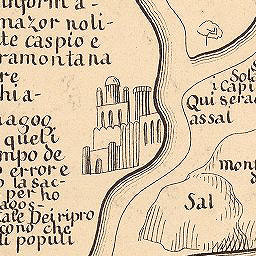 mazor noli-
te caspio e
ramontana
re
hia-
magog
quel i
mpo de
o errore
o la sac-
per ho
agos-
tale Dei ripro
cono che
li populi
Sola
i capi
Qui sera
assal
mon
Sal